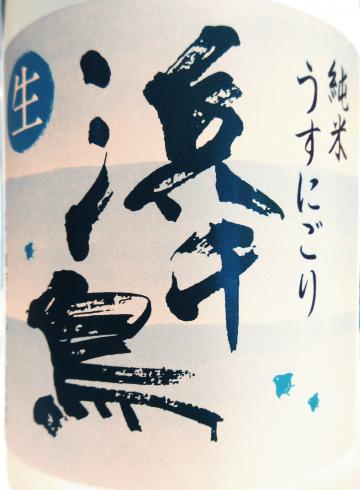 純米
うすにごり
浜千鳥
生